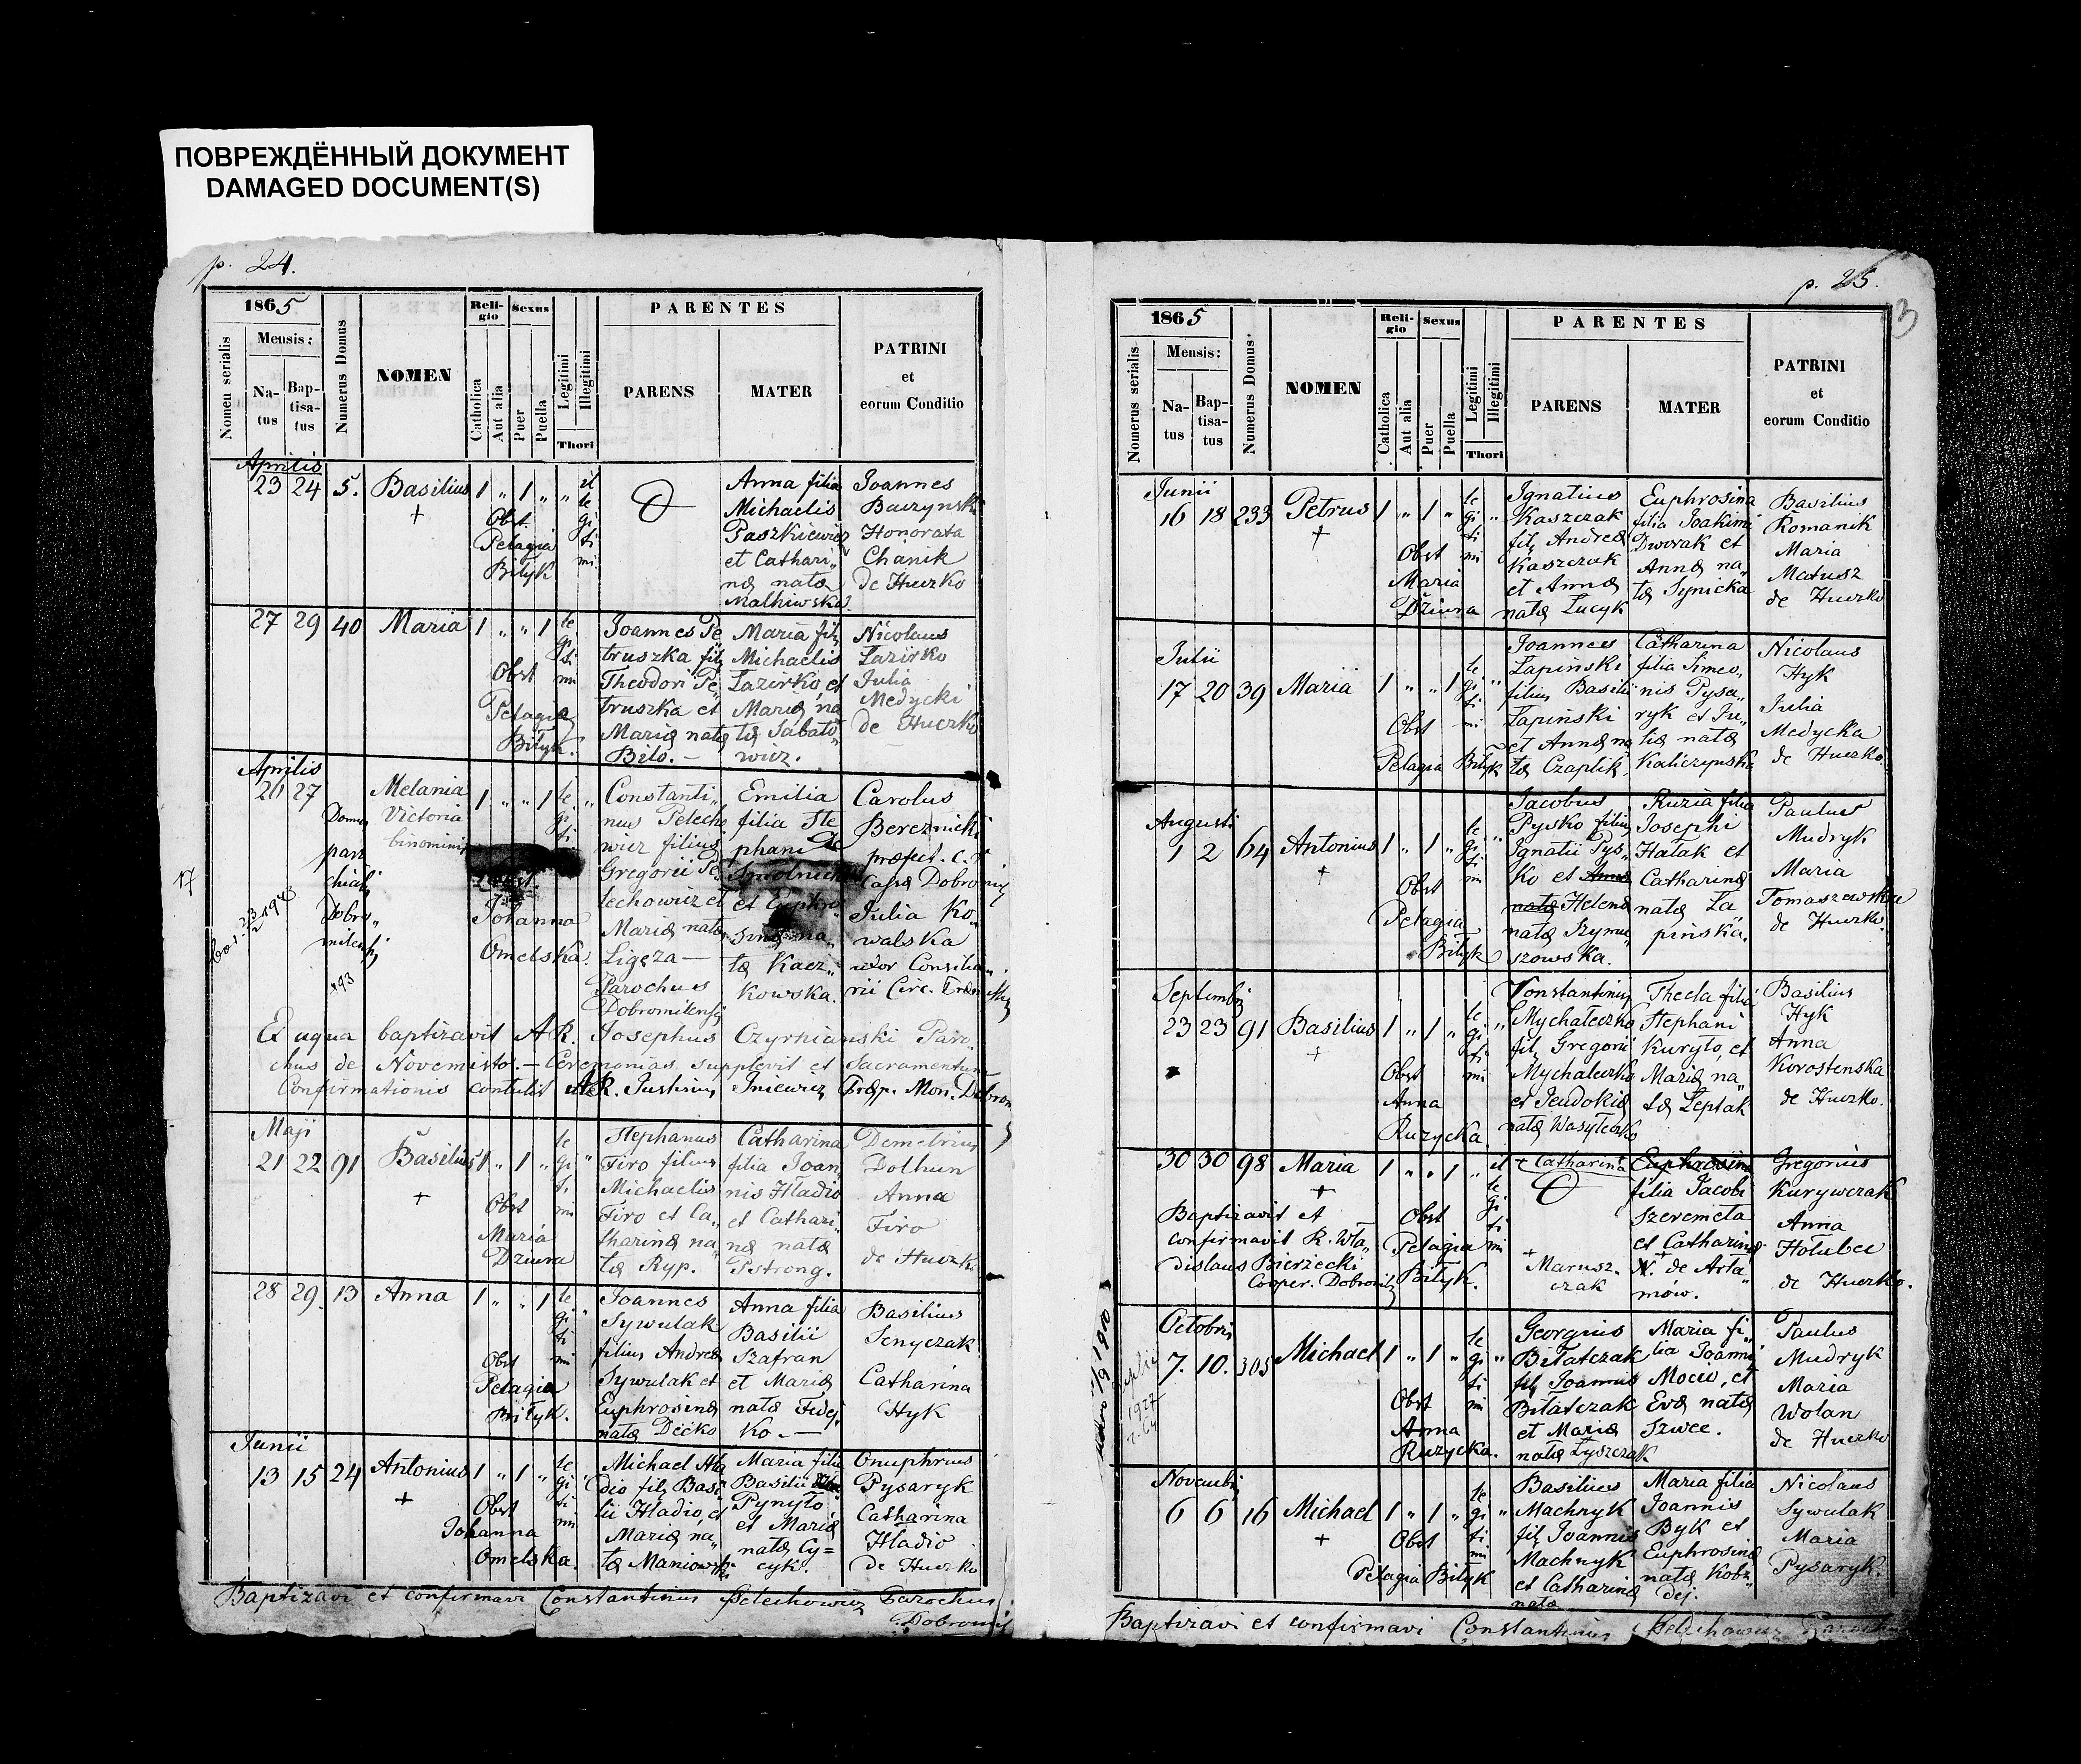 ПОВРЕЖДЁННЫЙ ДОКУМЕНТ
DAMAGED DOCUMENT(S)
p. 24.
1865
Mensis:
Nomeu serialis
Na-
tus
Bap-
tisa-
tus
Numerus Domus
NOMEN
Reli-
gio
Catholica
Aut alia
Sexus
Puer
Puella
Legitimi
Illegitimi
Thori
PARENTES
PARENS
MATER
PATRINI
et
eorum Conditio
Aprilis
23 24 5. Basilius 1 " 1 " "
+
il
le
gi
ti
mi
Obst.
Pelagia
Bityk
Anna filia
Michaelis
Paszkiewicz
et Cathari„
næ natæ
Malhiwska.
Joannes
Baczynski
Honorata
Chanik
de Huczko
27 29 40 Maria 1 " " 1
le
gi
ti
mi
Obst
Pelagia
Bityk.
Joannes Pe
truszka fil
Theodori Pe„
truszka et
Mariæ natæ
Bilo. —
Maria fil
Michaelis
Lazirko et
Mariæ na
tæ Sabato„
wicz.
Nicolaus
Lazirko
Julia
Medycki
de Huczko
Aprilis
20 27
Domus
paro
chialis
Dobro„
milensis
193
Melania
Victoria
binominis
1 " " 1 le "
gi
ti
Johanna
Omelska.
Constanti„
nus Pelecho
wicz filius
Gregorii Pe„
lechowicz et
Mariæ natæ
Ligęza —
Parochus
Dobromilensis
Emilia
filia Ste
phani de
Smolnicki
et Euphro„
sinæ na„
tæ Kacz„
kowska.
Carolus
Bereznicki
præfect. c. r.
Casæ Dobromil
Julia Ko„
walska
uxor Consilia„
rii Circ.
17
Ex aqua baptizavit A. R. Josephus Czyrnianski Paro„
chus de Novemisto. — Ceremonias supplevit et Sacramentum
Confirmationis contulit A. R. Justinus Iniewicz Præp. Mon. Dobrom
Maji
21 22 91 Basilius 1 " 1 " "
+
le
gi
ti
mi
Obst
Maria
Dziura
Stephanus
Firo filius
Michaelis
Firo et Ca„
tharinæ na„
tæ Ryp.
Catharina
filia Joan
nis Hladio
et Cathari„
næ natæ
Pstrong.
Demetrius
Dolhun
Anna
Firo
de Huczko
28 29. 13 Anna 1 " " 1 "
le
gi
ti
mi
Obst
Pelagia
Bityk.
Joannes
Sywulak
filius Andreæ
Sywulak et
Euphrosinæ
natæ Decko
Anna filia
Basilii
Szafran
et Mariæ
natæ Fedej„
ko. —
Basilius
Senyczak
Catharina
Hyk
Junii
13 15 24 Antonius 1 " 1 " "
+
le
gi
ti
mi
Obst
Johanna
Omelska.
Michael Hla
dio fil Basi
lii Hladio, et
Mariæ na„
tæ Maniowska
Maria filia
Basilii
Pynyło
et Mariæ
natæ Cy=
cyk.
Onuphrius
Pysaryk
Catharina
Hladio
de Huczko
Baptizavi et confirmavi Constantinus Pelechowicz Parochus
Dobromil
p. 25.
3
1865
Mensis:
Nomerus serialis
Na-
tus
Bap-
tisa-
tus
Numerus Domus.
NOMEN
Reli-
gio
Catholica
Aut alia
Sexus
Puer
Puella
Legitimi
Illegitimi
Thori
PARENTES
PARENS
MATER
PATRINI
et
eorum Conditio
Junii
16 18 233 Petrus 1 " 1 " "
+
le
gi
ti
mi
Obst
Maria
Dziura
Ignatius
Kaszczak
fil Andreæ
Kaszczak
et Annæ
natæ Lucyk
Euphrosina
filia Joakimi
Dworak et
Annæ na„
tæ Synicka
Basilius
Romanik
Maria
Matusz
de Huczko
Julii
17 20 39 Maria 1 " " 1 "
le
gi
ti
mi
Obst
Pelagia Bityk
Joannes
Lapinski
filius Basilii
Lapinski
et Annæ na
tæ Czaplik.
Catharina
filia Simeo„
nis Pysa„
ryk et Ju„
liæ natæ
Kaliczynska
Nicolaus
Hyk
Julia
Medycka
de Huczko
Augusti
1 2 64 Antonius 1 " 1 " "
+
le
gi
ti
mi
Obst
Pelagia
Bityk
Jacobus
Pysko filius
Ignatii Pys„
ko et Annæ
natæ Helenæ
natæ Szymu„
szowska.
Ruzia filia
Josephi
Hałak et
Catharinæ
natæ La„
pinska.
Paulus
Mudryk
Maria
Tomaszewska
de Huczko.
Septembris
23 23 91 Basilius 1 " 1 " "
+
le
gi
ti
mi
Obst
Anna
Ruzycka
Constantinus
Mychaleczko
fil Gregorii
Mychaleczko
et Jeudokiæ
natæ Wasyleczko
Thecla filia
Stephani
Kuryło, et
Mariæ na„
tæ Leptak
Basilius
Hyk
Anna
Korostenska
de Huczko.
30 30 98 Maria 1 " " 1 "
+
il
le
gi
ti
mi
Baptizavit et
confirmavit R. Wła„
dislaus Bierzecki
Cooper. Dobromil
Obst
Pelagia
Bityk.
+ Catharina
+
Marusz.
czak
Euphrosina
filia Jacobi
Szeremeta
et Catharinæ
N. de Arła„
mów.
Gregorius
Kurywczak
Anna
Hołubec
de Huczko.
Octobris
7. 10. 305 Michael 1 " 1 " "
le
gi
ti
mi
Obst
Anna
Ruzycka.
Georgius
Biłatczak
fil Joannis
Biłatczak
et Mariæ
natæ Łyszczak
Maria fi„
lia Joannis
Mocio, et
Evæ natæ
Szwec.
Paulus
Mudryk
Maria
Wolan
de Huczko
1927
Novembris
6 6 16 Michael 1 " 1 " "
+
le
gi
ti
mi
Obst
Pelagia Bityk
Basilius
Machnyk
fil Joannis
Machnyk
et Catharinæ
natæ
Maria filia
Joannis
Byk et
Euphrosinæ
natæ Kobz„
dej.
Nicolaus
Sywulak
Maria
Pysaryk.
Baptizavi et confirmavi Constantinus Pelechowicz Parochus